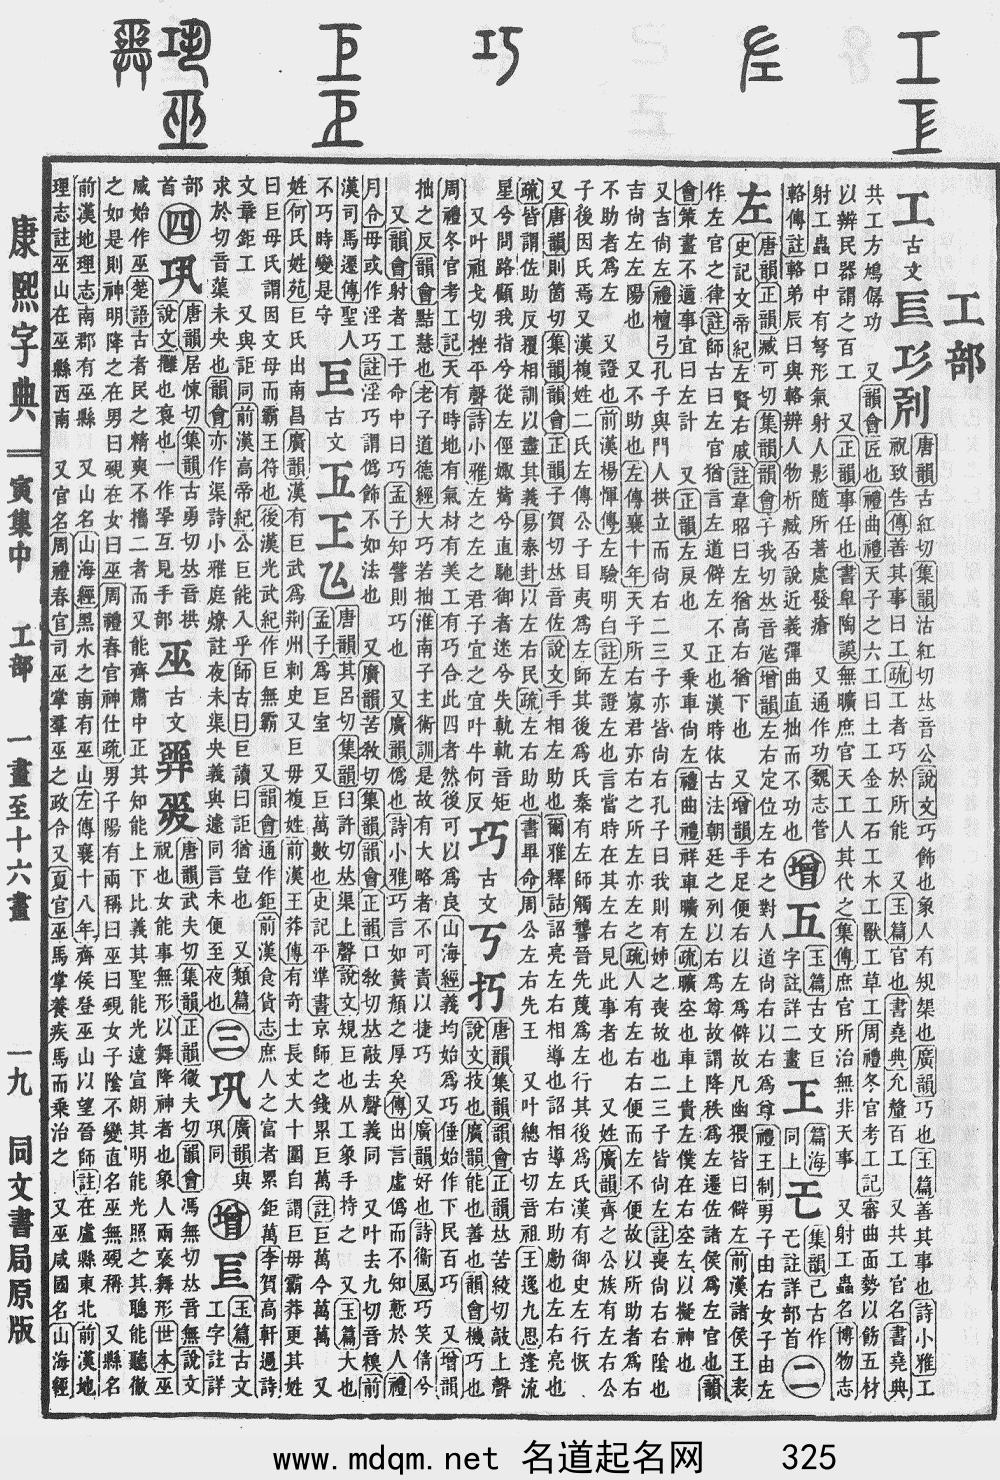 工部
工 古文𢒄𢀚𠝒 唐韻古紅切集韻沽紅切𠀤音公說文巧飾也象人有規榘也廣韻巧也玉篇善其事也詩小雅工
祝致吿傳善其事曰工疏工者巧於所能 又玉篇官也書堯典允釐百工 又共工官名書堯典
共工方鳩僝功 又韻會匠也禮曲禮天子之六工曰土工金工石工木工獸工草工周禮冬官考工記審曲面勢以飭五材
以辨民器謂之百工 又正韻事任也書臯陶謨無曠庶官天工人其代之集傳庶官所治無非天事 又射工蟲名博物志
射工蟲口中有弩形氣射人影隨所著處發瘡 又通作功魏志管
輅傳註輅弟辰曰與輅辨人物析臧否說近義彈曲直拙而不功也
增 𠄡 玉篇古文巨字註詳二畫 𢀑 篇海同上 𢀒 集韻己古作𢀒註詳部首 二
左 唐韻正韻臧可切集韻韻會子我切𠀤音䇮增韻左右定位左右之對人道尚右以右爲尊禮王制男子由右女子由左
史記文帝紀左賢右戚註韋昭曰左猶高右猶下也 又增韻手足便右以左爲僻故凡幽猥皆曰僻左前漢諸侯王表
作左官之律註師古曰左官猶言左道僻左不正也漢時依古法朝廷之列以右爲尊故謂降秩爲左遷佐諸侯爲左官也韻
會策畫不適事宜曰左計 又正韻左戾也 又乗車尚左禮曲禮祥車曠左疏曠空也車上貴左僕在右空左以擬神也
又吉尚左禮檀弓孔子與門人拱立而尚右二三子亦皆尚右孔子曰我則有姊之喪故也二三子皆尚左註喪尚右右陰也
吉尚左左陽也 又不助也左傳襄十年天子所右寡君亦右之所左亦左之疏人有左右右便而左不便故以所助者爲右
不助者爲左 又證也前漢楊惲傳左驗明白註左證左也言當時在其左右見此事者也 又姓廣韻齊之公族有左右公
子後因氏焉又漢複姓二氏左傳公子目夷爲左師其後爲氏秦有左師觸讋晉先蔑爲左行其後爲氏漢有御史左行恢
又唐韻則箇切集韻韻會正韻子賀切𠀤音佐說文手相左助也爾雅釋詁詔亮左右相導也詔相導左右助勴也左右亮也
疏皆謂佐助反覆相訓以盡其義易泰卦以左右民疏左右助也書畢命周公左右先王 又叶總古切音祖王逸九思逢流
星兮問路顧我指兮從左俓娵觜兮直馳御者迷兮失軌軌音矩
又叶祖戈切挫平聲詩小雅左之左之君子宜之宜叶牛何反
巧 古文丂㧑 唐韻集韻韻會正韻𠀤苦絞切敲上聲說文技也廣韻能也善也韻會機巧也
周禮冬官考工記天有時地有氣材有美工有巧合此四者然後可以爲良山海經義均始爲巧倕始作下民百巧 又增韻
拙之反韻會黠慧也老子道德經大巧若拙淮南子主術訓是故有大略者不可責以捷巧 又廣韻好也詩衞風巧笑倩兮
又韻會射者工于命中曰巧孟子知譬則巧也 又廣韻僞也詩小雅巧言如簧顏之厚矣傳出言虛僞而不知慙於人禮
月令毋或作淫巧註淫巧謂僞飾不如法也 又廣韻苦敎切集韻韻會正韻口敎切𠀤敲去聲義同 又叶去九切音糗前
漢司馬遷傳聖人不巧時變是守
巨 古文𠄡𢀑 唐韻其呂切集韻臼許切𠀤渠上聲說文規巨也从工象手持之 又玉篇大也
孟子爲巨室 又巨萬數也史記平準書京師之錢累巨萬註巨萬今萬萬 又
姓何氏姓苑巨氏出南昌廣韻漢有巨武爲荆州刺史又巨毋複姓前漢王莽傳有奇士長丈大十圍自謂巨毋霸莽更其姓
曰巨毋氏謂因文母而霸王符也後漢光武紀作巨無霸 又韻會通作鉅前漢食貨志庶人之富者累鉅萬李賀高軒過詩
文章鉅工 又與詎同前漢高帝紀公巨能入乎師古曰巨讀曰詎猶豈也 又類篇
求於切音蕖未央也韻會亦作渠詩小雅庭燎註夜未渠央義與遽同言未便至夜也
三 巩 廣韻與巩同 增 玉篇古文工字註詳部首
四 巩 唐韻居悚切集韻古勇切𠀤音拱說文𢹬也褱也一作𢀜互見手部
巫 古文 唐韻武夫切集韻正韻微夫切韻會馮無切𠀤音無說文
祝也女能事無形以舞降神者也象人兩褎舞形世本巫
咸始作巫楚語古者民之精爽不攜二者而又能齊肅中正其知能上下比義其聖能光遠宣朗其明能光照之其聰能聽徹
之如是則神明降之在男曰覡在女曰巫周禮春官神仕疏男子陽有兩稱曰巫曰覡女子陰不變直名巫無覡稱 又縣名
前漢地理志南郡有巫縣 又山名山海經黑水之南有巫山左傳襄十八年齊侯登巫山以望晉師註在盧縣東北前漢地
理志註巫山在巫縣西南 又官名周禮春官司巫掌羣巫之政令又夏官巫馬掌養疾馬而乗治之 又巫咸國名山海經
康熙字典 寅集中 工部 一畫至十六畫 一九 同文書局原版
www.mdqm.net 名道起名网 325